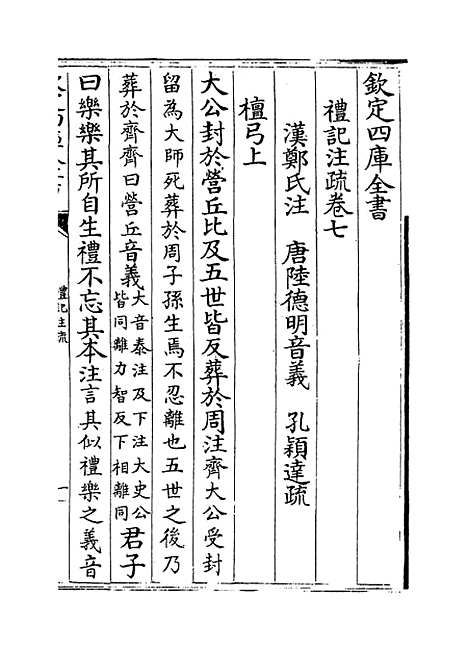 欽定四庫全書
禮記注疏卷七
漢鄭氏注　唐陸德明音義　孔穎達疏
檀弓上
大公封於營丘比及五世皆反葬於周注齊大公受封
留為大師死葬於周子孫生焉不忍離也五世之後乃
葬於齊齊曰營丘音義大音泰注及下注大史公皆同離力智反下相離同君子
曰樂樂其所自生禮不忘其本注言其似禮樂之義音
禮記注疏
一